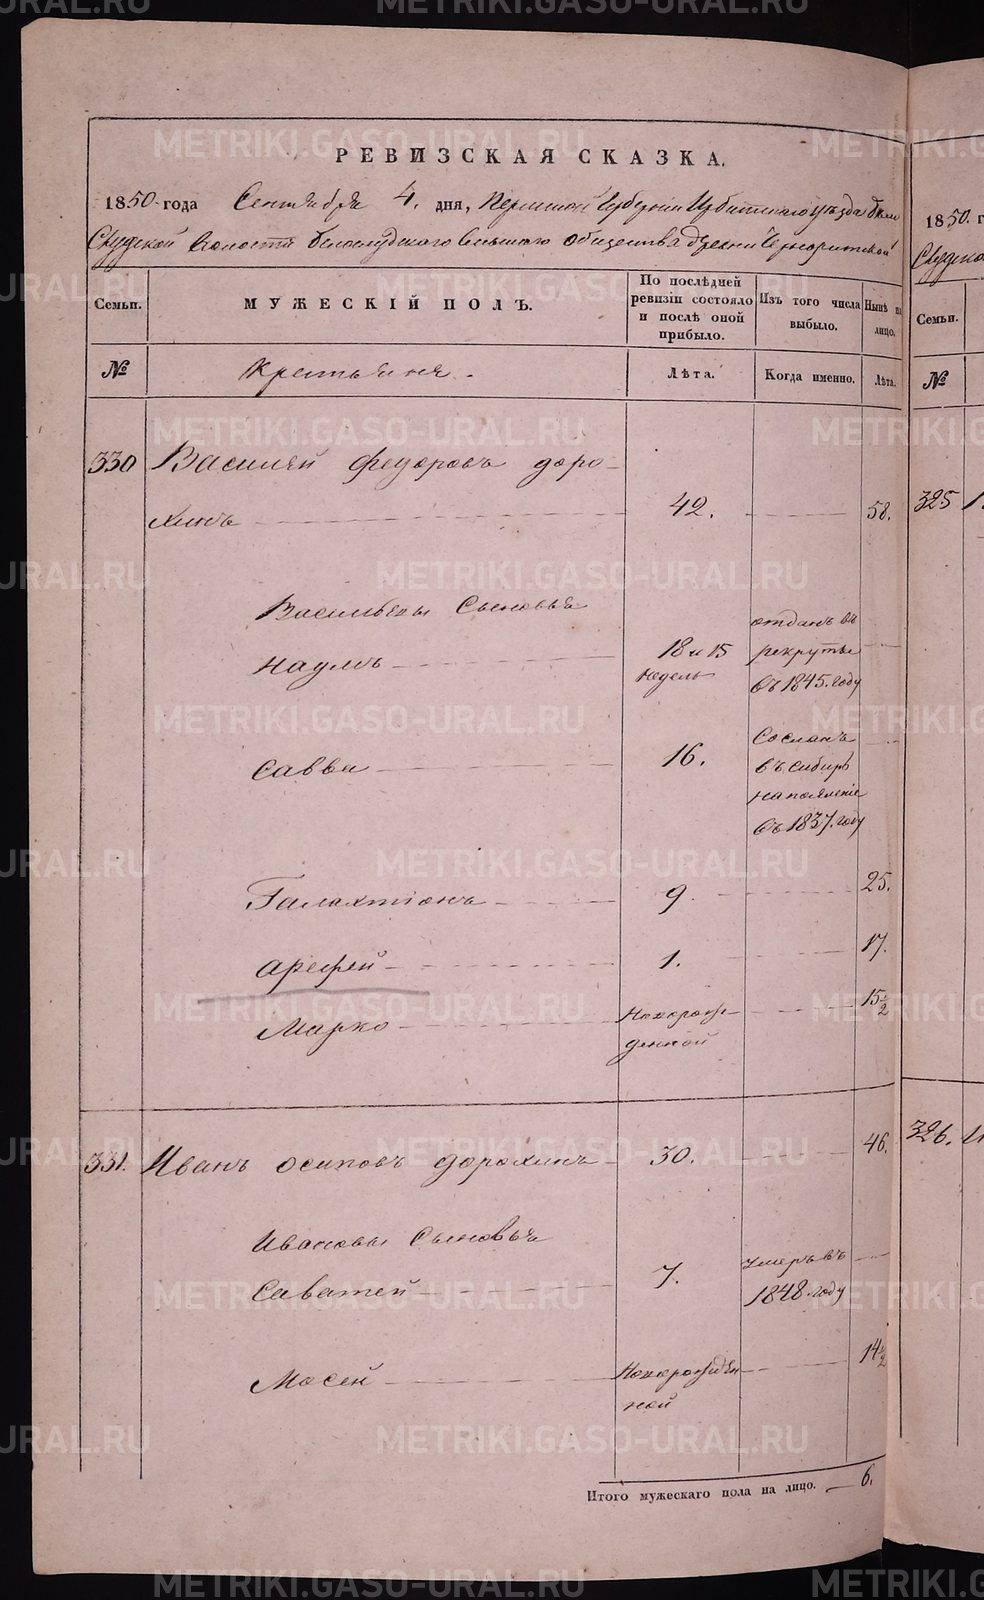 METRIKI.GASO-URAL.RU
РЕВИЗСКАЯ СКАЗКА.
1850 года Сентября 4. дня, Пермской Губернии Ирбитскаго уезда Бело
Слудской волости Белослудскаго сельскаго общества деревни
Семьи.
МУЖЕСКІЙ ПОЛЪ.
По послѣдней ревизіи состояло и послѣ оной прибыло.
Изъ того числа выбыло.
Нынѣ на лицо.
№
Крестьяне.
Лѣта.
Когда именно.
Лѣта.
330 Василей Федоровъ Доро-
хинъ 42. 58.
Васильевы Сыновья
Наумъ 18 и 15 недель отданъ въ рекруты въ 1845. году
Савва 16. Сосланъ въ Сибирь на поселеніе въ 1837. году
Галахтіонъ 9. 25.
Арефей 1. 17.
Марко Новорож-
денной 15½
331. Иванъ Осиповъ Дорохинъ 30. 46.
Ивановы Сыновья
Саватей 7. умеръ въ 1848. году
Мосей Новорожден-
ной 14½
Итого мужескаго пола на лицо. 6.
1850. г
Слудско
Семьи.
№
325
326.